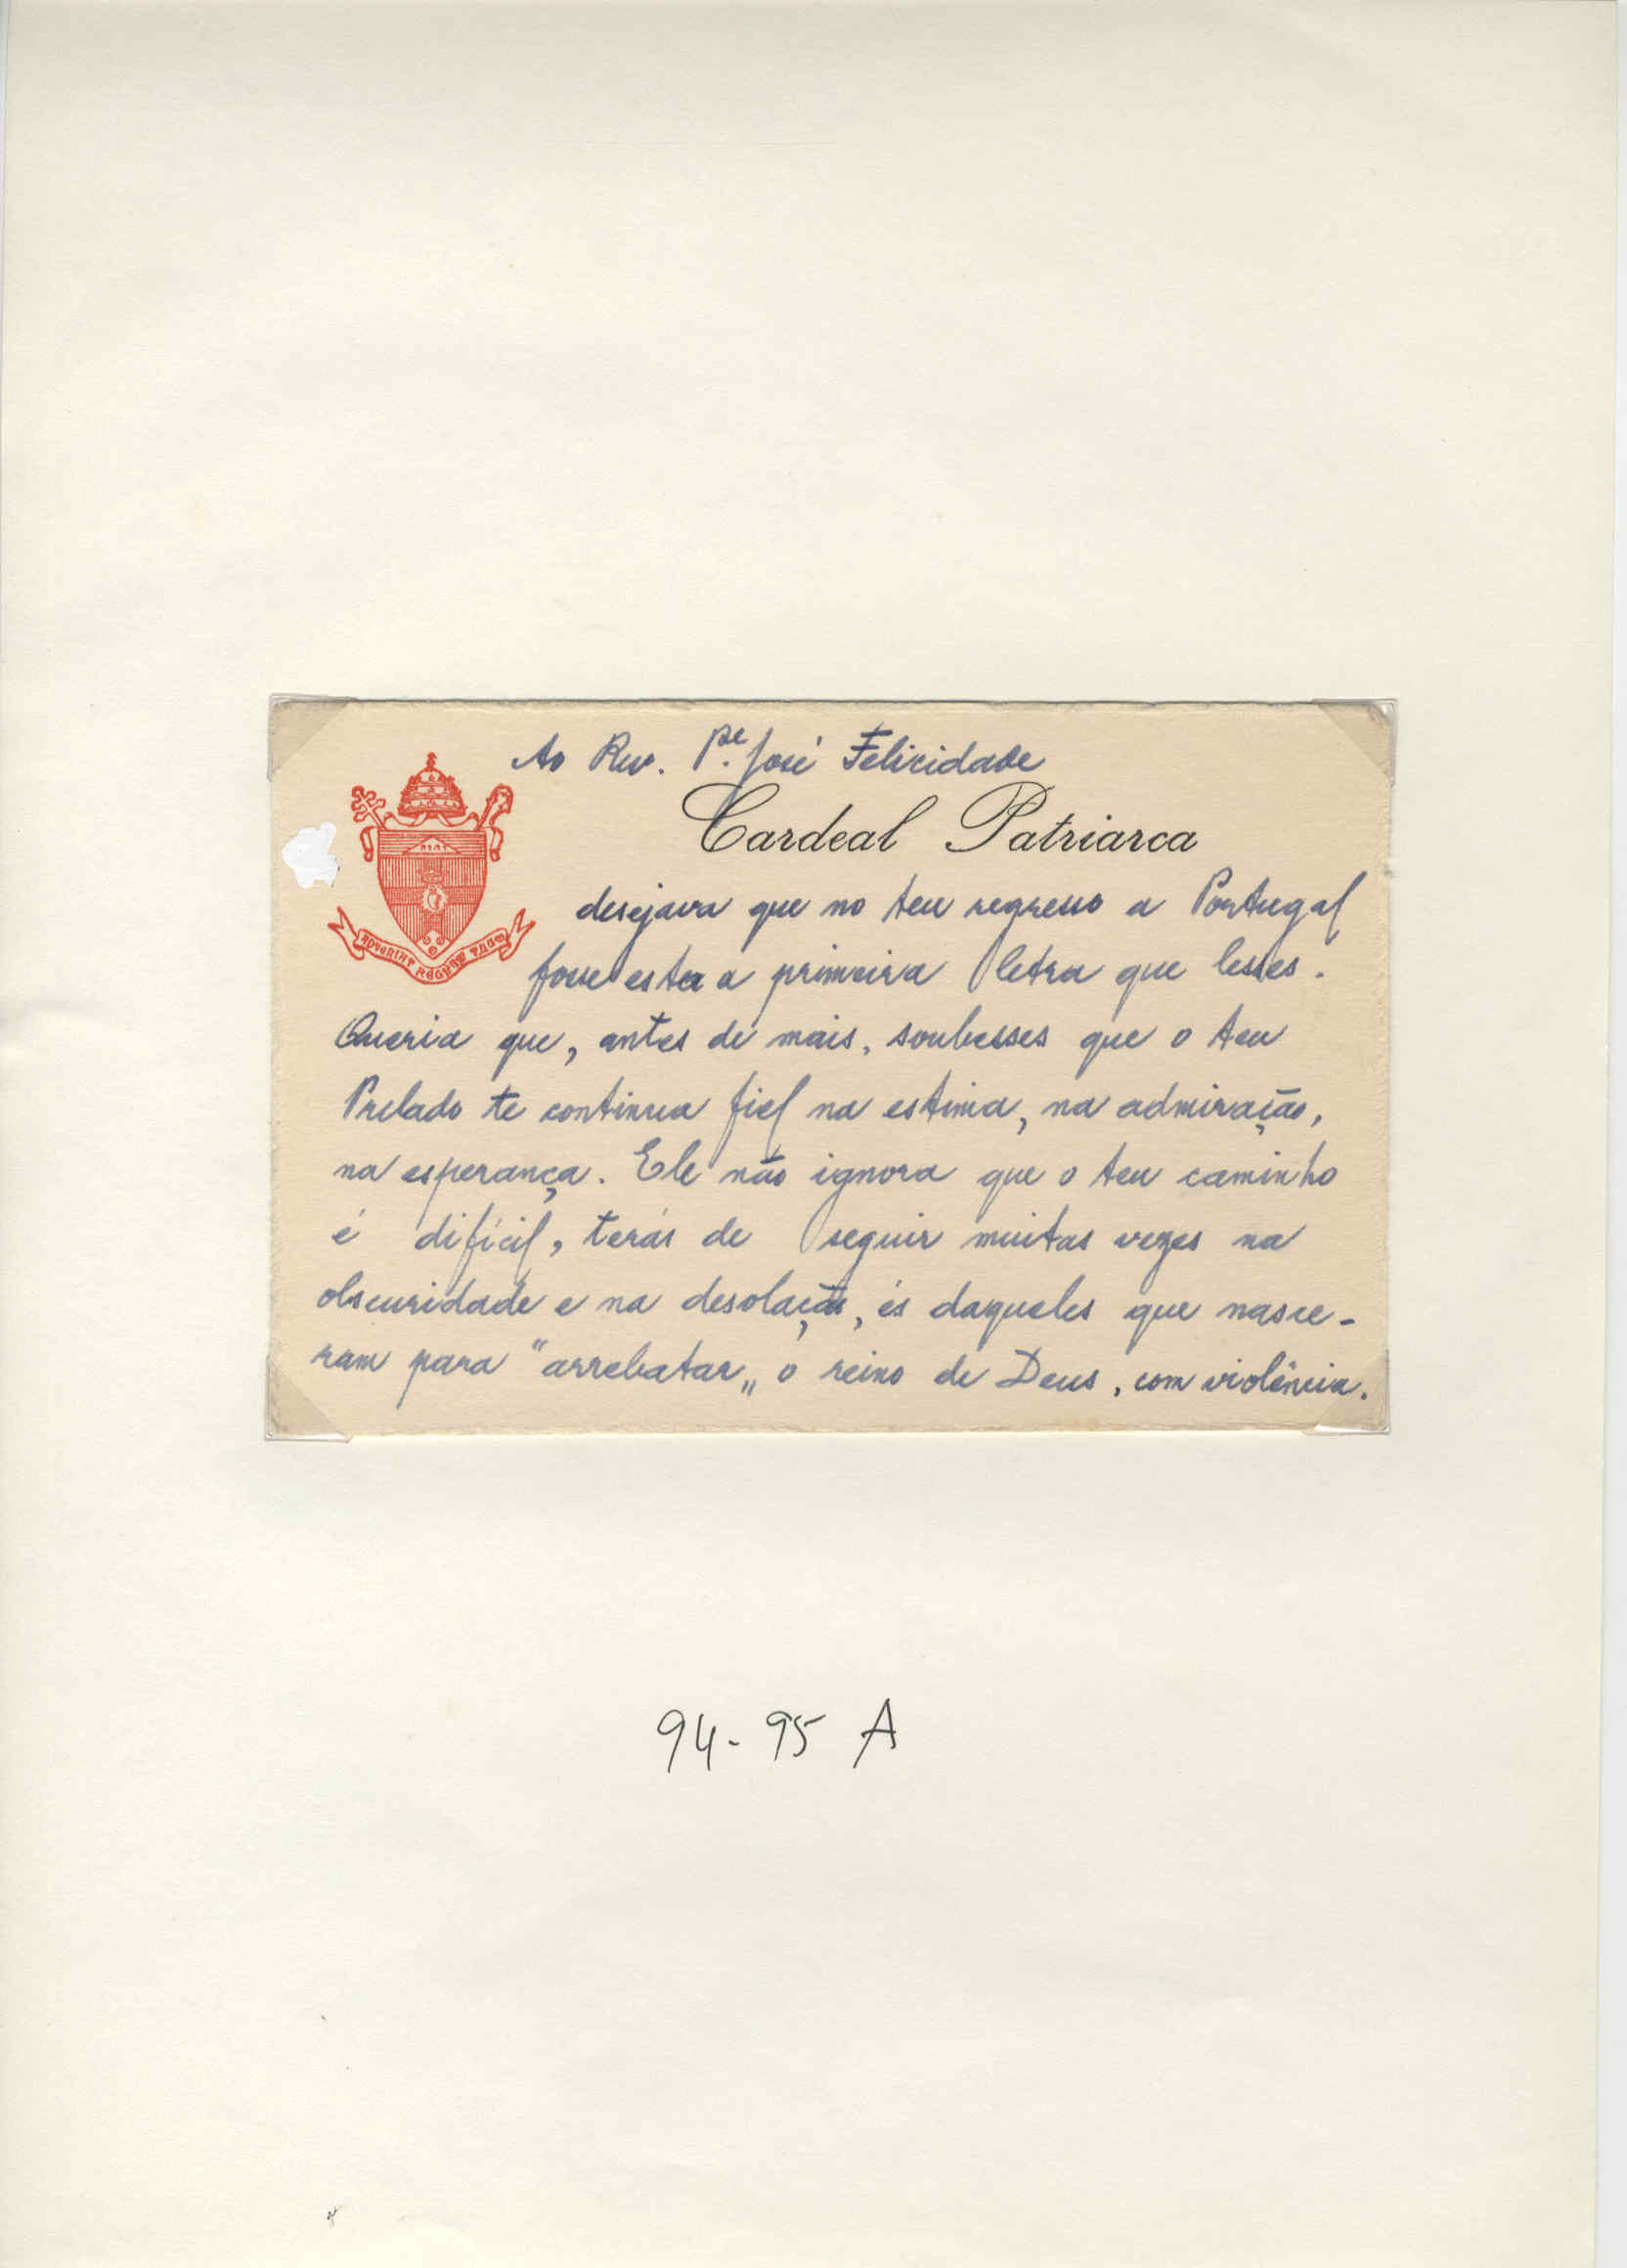 Ao Rev. P.e José Felicidade
Cardeal Patriarca
desejava que no teu regresso a Portugal
fosse esta a primeira letra que lesses.
Queria que, antes de mais, soubesses que o teu
Prelado te continua fiel na estima, na admiração,
na esperança. Ele não ignora que o teu caminho
é difícil, terás de seguir muitas vezes na
obscuridade e na desolação, és daqueles que nasce-
ram para "arrebatar" o reino de Deus, com violência.
94-95 A